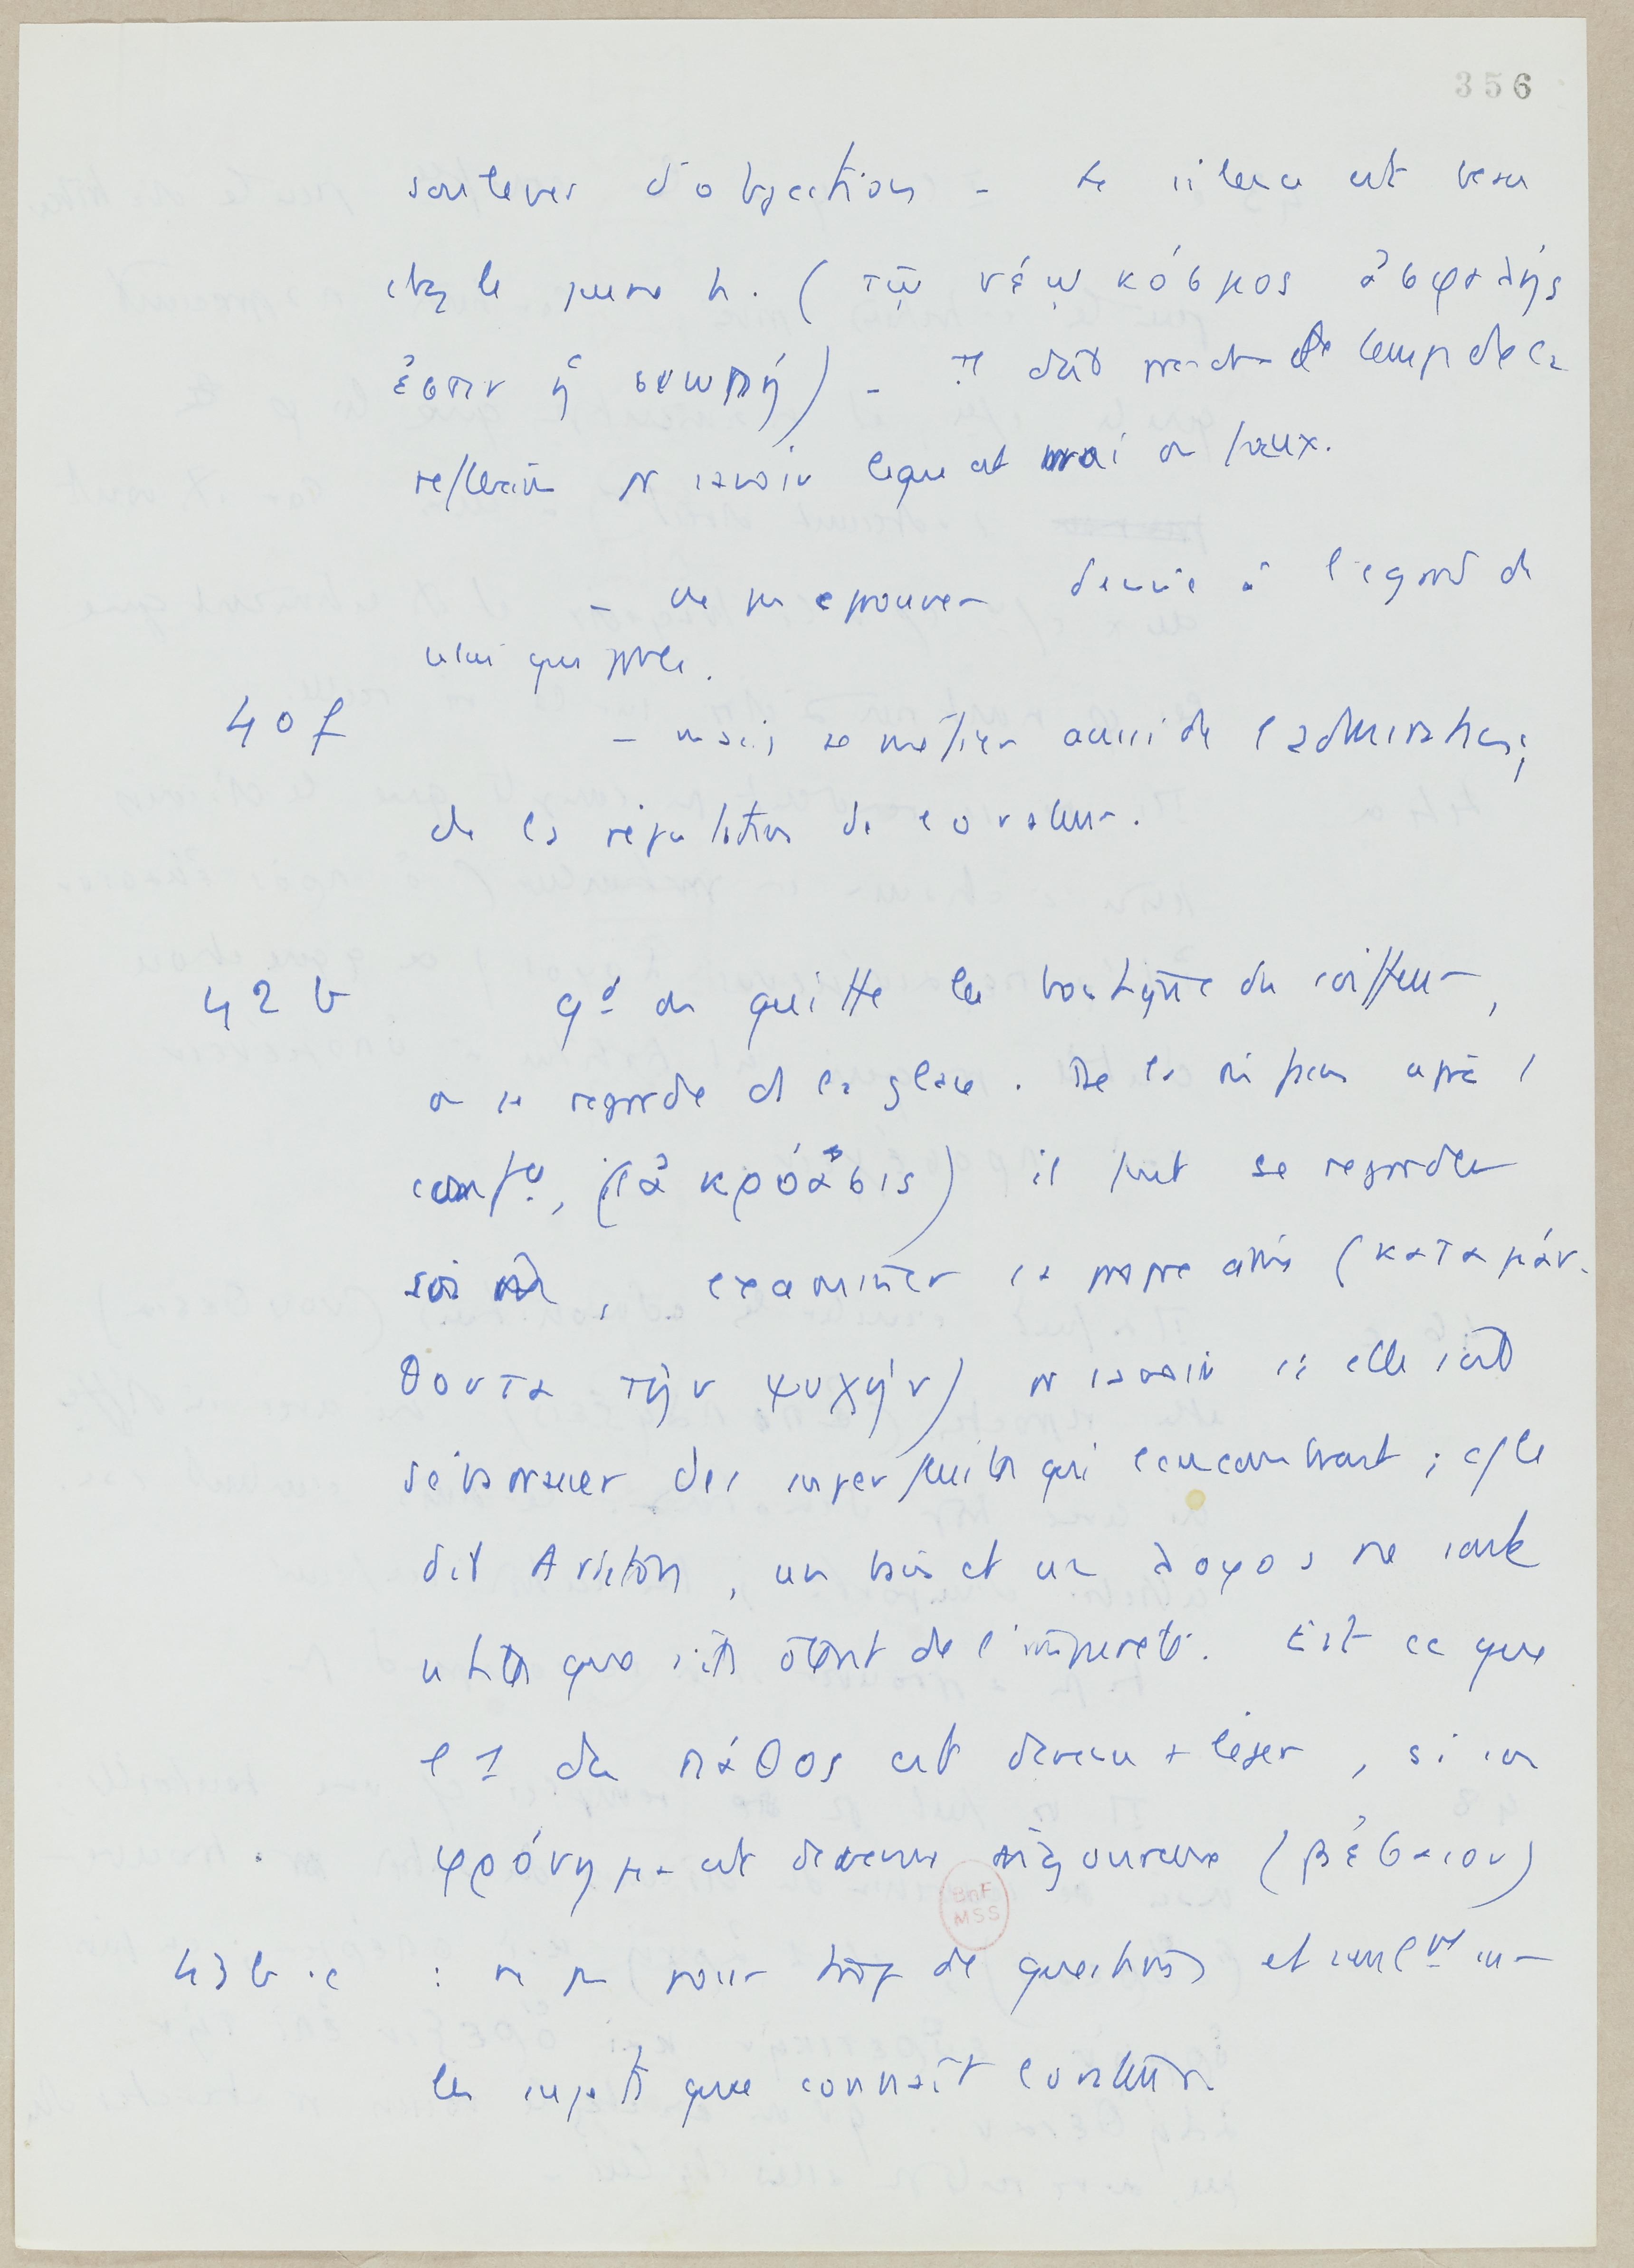 356
soulever d'objection - Le silence est beau
chez le jeune h. (τῷ νέῳ κόσμος ἀσφαλής
ἐστιν ἡ σιωπή) - Il doit prendre le temps de la
reflexion pr savoir ce que est vrai ou faux.
- ne pas eprouver d'envie à l'egard de
celui qui parle.
40 f
- mais se méfier aussi de l'admiration,
de la réputation de l'orateur.
42 b
qd on quitte la boutique du coiffeur,
on se regarde ds la glace. De la mi façon après 1
conf., (τὰ κρόασις) il faut se regarder
soi m, examiner sa propre âme (καταμάν-
θοντα τὴν ψυχήν) pr savoir si elle s'est
débarrassée des superfluités qui l'encombrent ; c/ le
dit Ariston, un bain et un λογος ne sont
utiles que s'ils ôtent de l'impureté. Est ce que
l 1 du πάθος est devenu + léger, si son
φρόνημα est devenu vigoureux (βέβαιον)
43 b.c : ne pas poser trop de questions et seulemt sur
les sujets que connaît l'orateur.
BnF
MSS